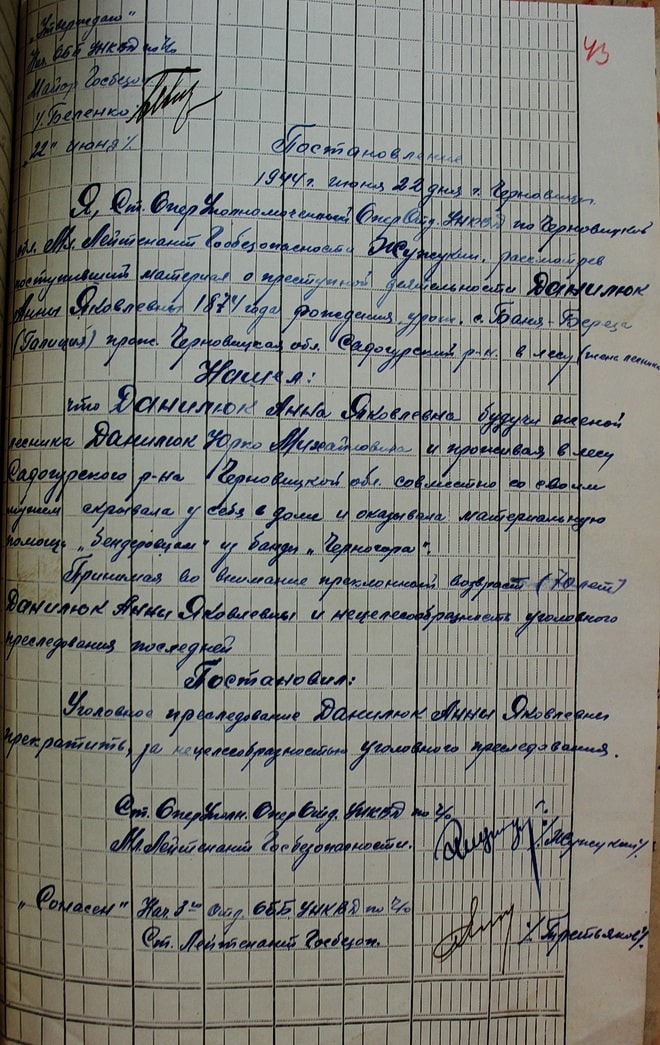 „Утверждаю"
Нач. ОББ УНКВД по Ч/о
Майор Госбезоп.
/. Беленко
„22" июня /.
43
Постановление
1944 г. июня 22 дня г. Черновицы.
Я, Ст. Опер Уполномоченный ОперОтд. УНКВД по Черновицкой
обл. Мл. Лейтенант Госбезопасности Жужукин, рассмотрев
поступивший материал о преступной деятельности Данилюк
Анны Яковлевны 1874 года рождения, урож. с. Баня-Береза
(Галиция) прож. Черновицкая обл. Садогурский р-н. в лесу (жена лесника
Нашел:
что Данилюк Анна Яковлевна будучи женой
лесника Данилюк Юрко Михайловича и проживая в лесу
Садогурского р-на Черновицкой обл. совместно со своим
мужем скрывала у себя в доме и оказывала материальную
помощь „Бендеровцам" из банды „Черногора".
Принимая во внимание преклонный возвраст (70 лет)
Данилюк Анны Яковлевны и нецелесообразность уголовного
преследования последней
Постановил:
Уголовное преследование Данилюк Анны Яковлевны
прекратить, за нецелесообразностью уголовного преследования.
Ст. ОперУполн. ОперОтд. УНКВД по Ч/о
Мл. Лейтенант Госбезопасности. /Жужукин/.
„Согласен" Нач. 3го Отд. ОББ УНКВД по Ч/о
Ст. Лейтенант Госбезоп. /. Третьяков/.